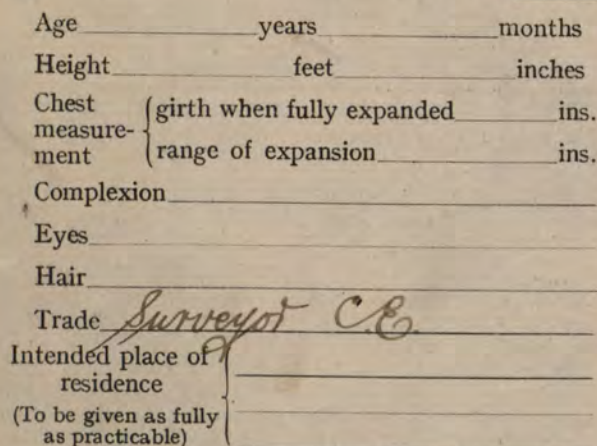 Age years months
Height feet inches
Chest measure-ment girth when fully expanded ins.
range of expansion ins.
Complexion
Eyes
Hair
Trade Surveyor C.E.
Intended place of residence
(To be given as fully as practicable)